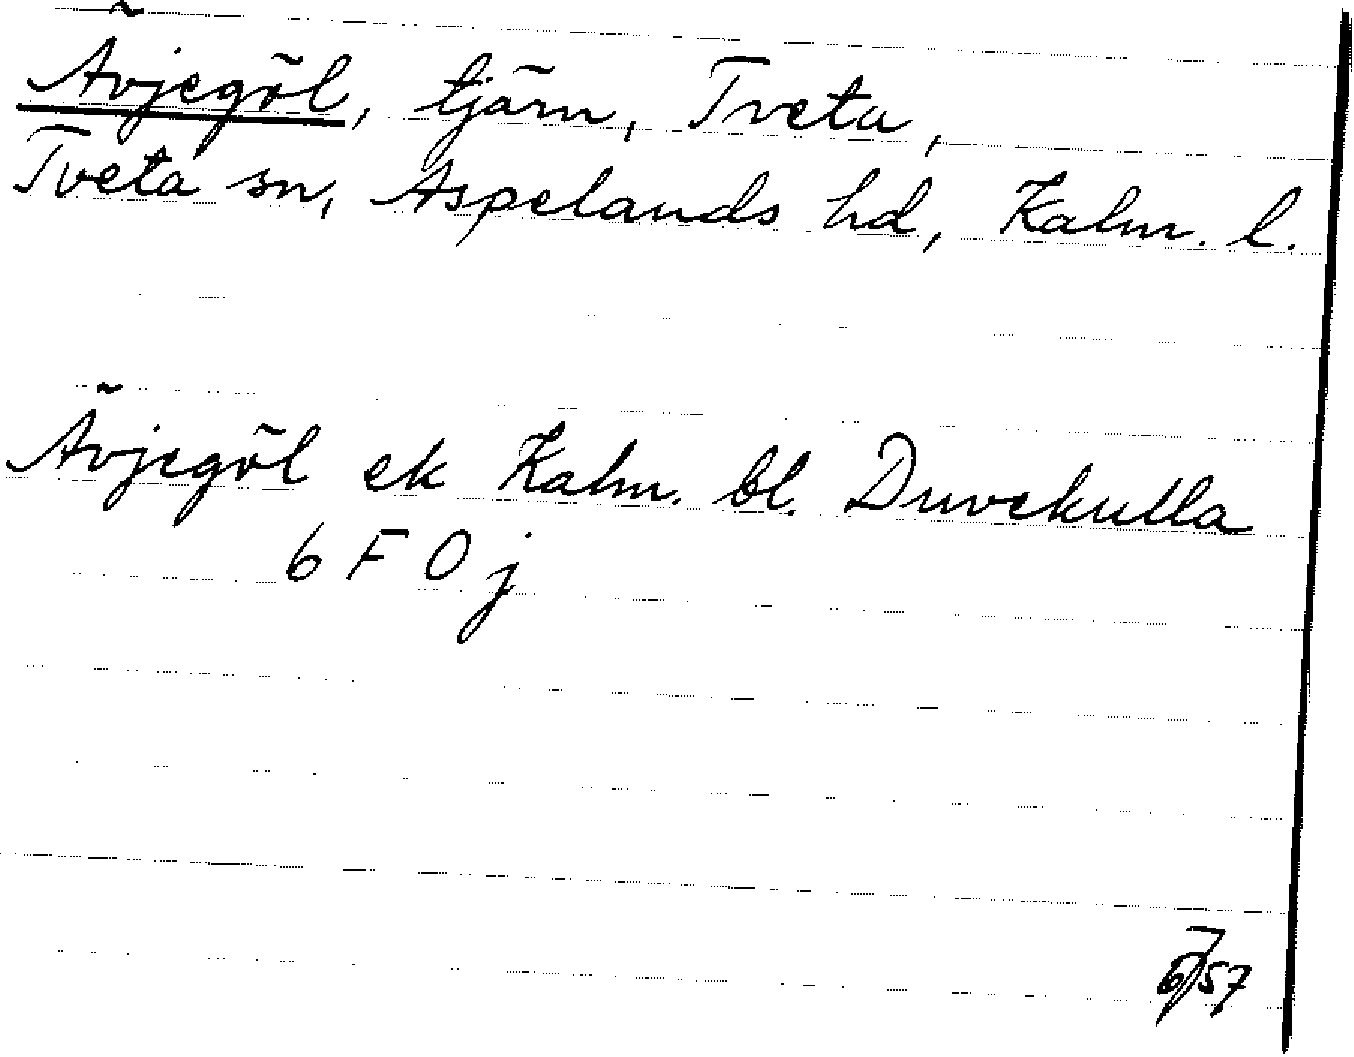 Ävjegöl, tjärn, Tveta,
Tveta sn, Aspelands hd, Kalm. l.
Ävjegöl ek Kalm. bl. Duvekulla
6 F 0 j